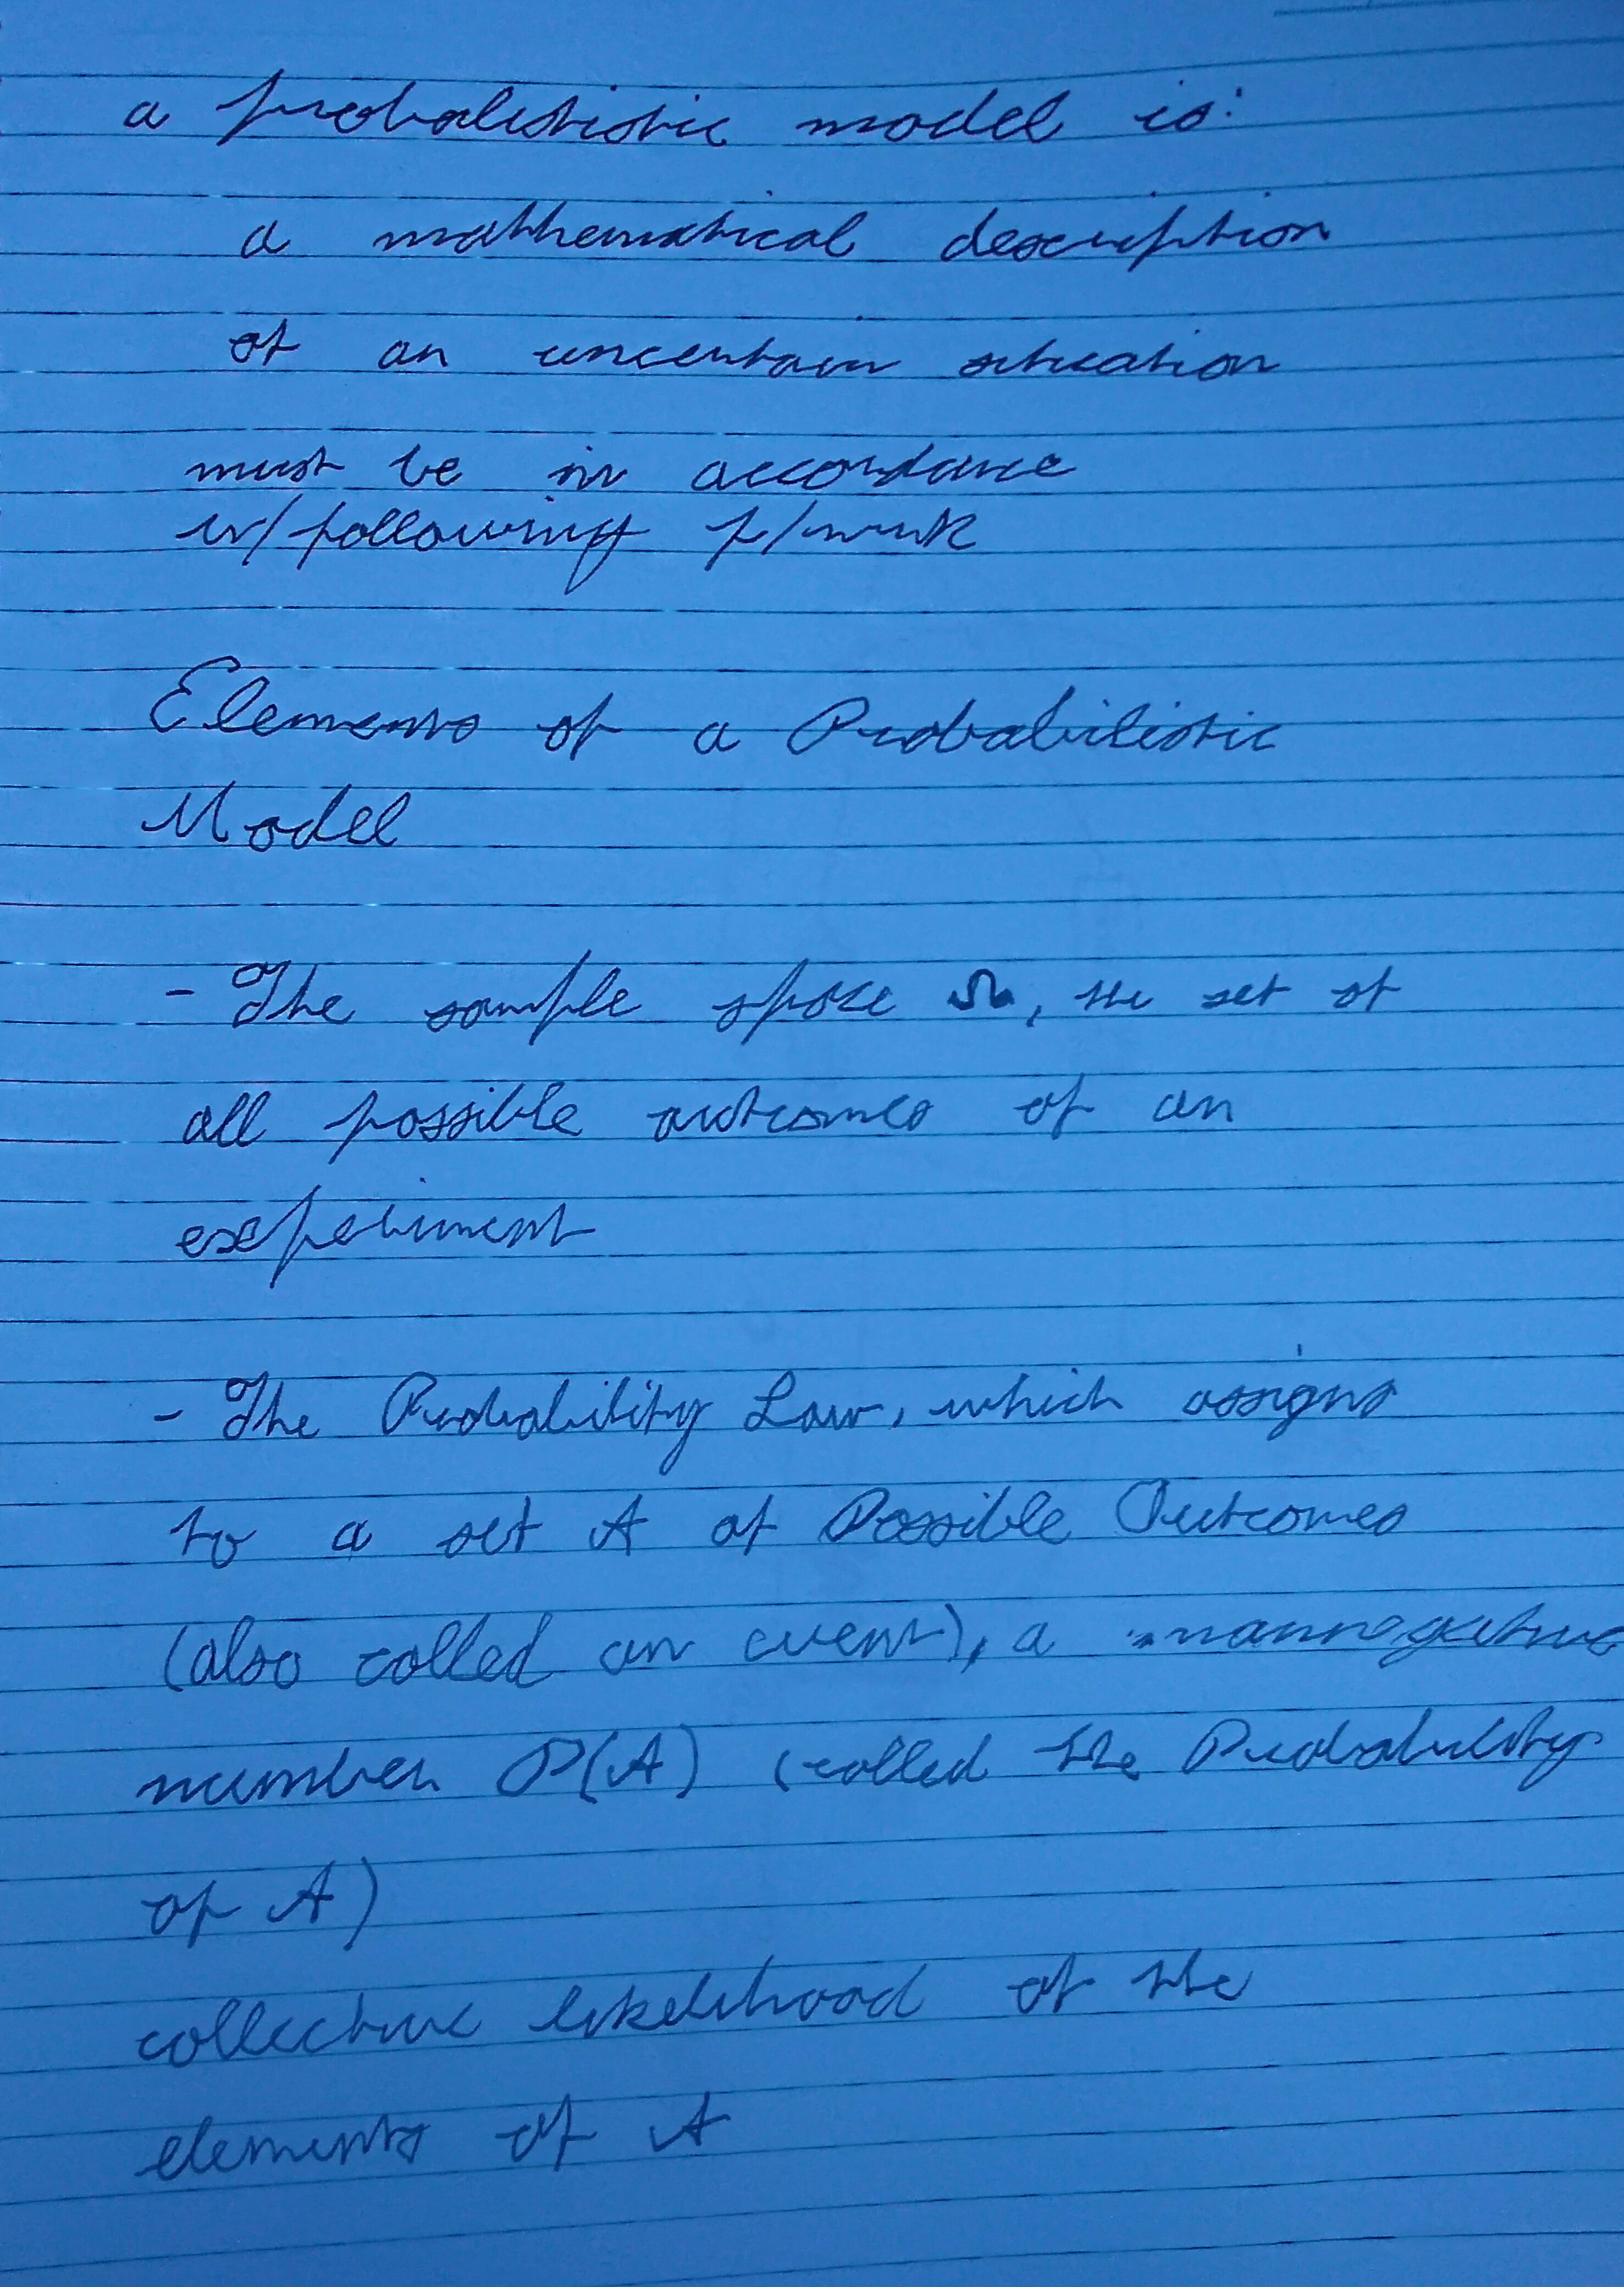 a probalististic model is:
a mathhematical description
of an uncertain situation
must be in accordance
w/following f/wrk
Elements of a Probabilistic
Model
- The sample space Ω, the set of
all possible outcomes of an
experiment
- The Probability Law, which assigns
to a set A of Possible Outcomes
(also called an event), a nonnegative
number P(A) (called the Probability
of A)
collective likelihood of the
elements of A